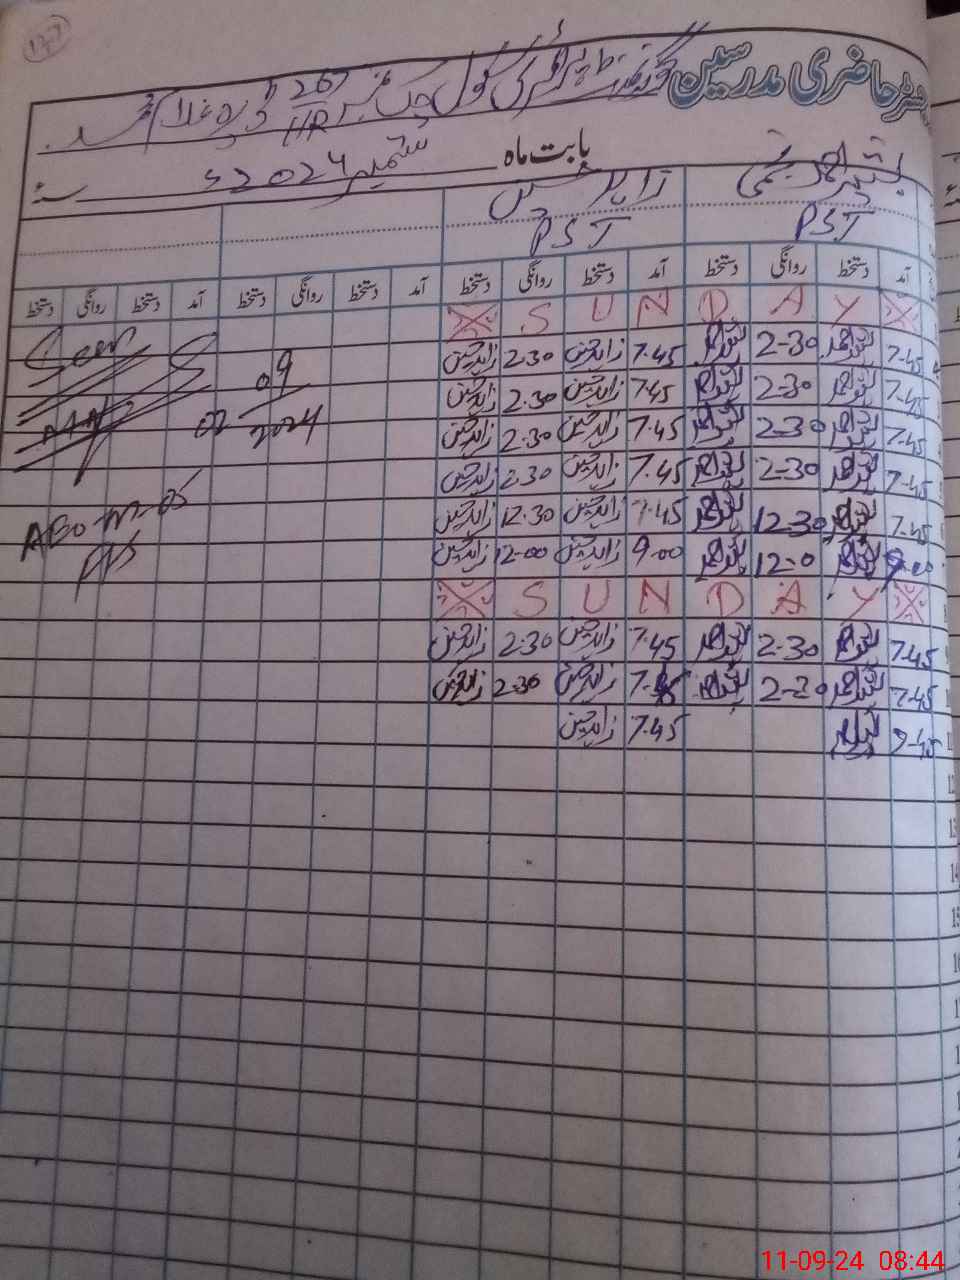 رجسٹر حاضری مدرسین
گورنمنٹ پرائمری سکول چک نمبر 267/HR
بابت ماہ ستمبر 2024ء
بشیر احمد زاہد حسین
PST PST
آمد دستخط روانگی دستخط آمد دستخط روانگی دستخط آمد دستخط روانگی دستخط آمد دستخط روانگی دستخط
X S U N D A Y X
7-45 بشیر احمد 2-30 بشیر احمد 7.45 زاہد حسین 2.30 زاہد حسین
7-45 بشیر احمد 2-30 بشیر احمد 7.45 زاہد حسین 2.30 زاہد حسین
7-45 بشیر احمد 2-30 بشیر احمد 7.45 زاہد حسین 2.30 زاہد حسین
7-45 بشیر احمد 2-30 بشیر احمد 7.45 زاہد حسین 2.30 زاہد حسین
7-45 بشیر احمد 12-30 بشیر احمد 7.45 زاہد حسین 12.30 زاہد حسین
9-00 بشیر احمد 12-0 بشیر احمد 9-00 زاہد حسین 12-00 زاہد حسین
X S U N D A Y X
7-45 بشیر احمد 2-30 بشیر احمد 7.45 زاہد حسین 2.30 زاہد حسین
7-45 بشیر احمد 2-30 بشیر احمد 7-45 زاہد حسین 2-30 زاہد حسین
7-45 بشیر احمد 7.45 زاہد حسین
Seen
02 09 2024
12
13
14
15
16
11-09-24 08:44